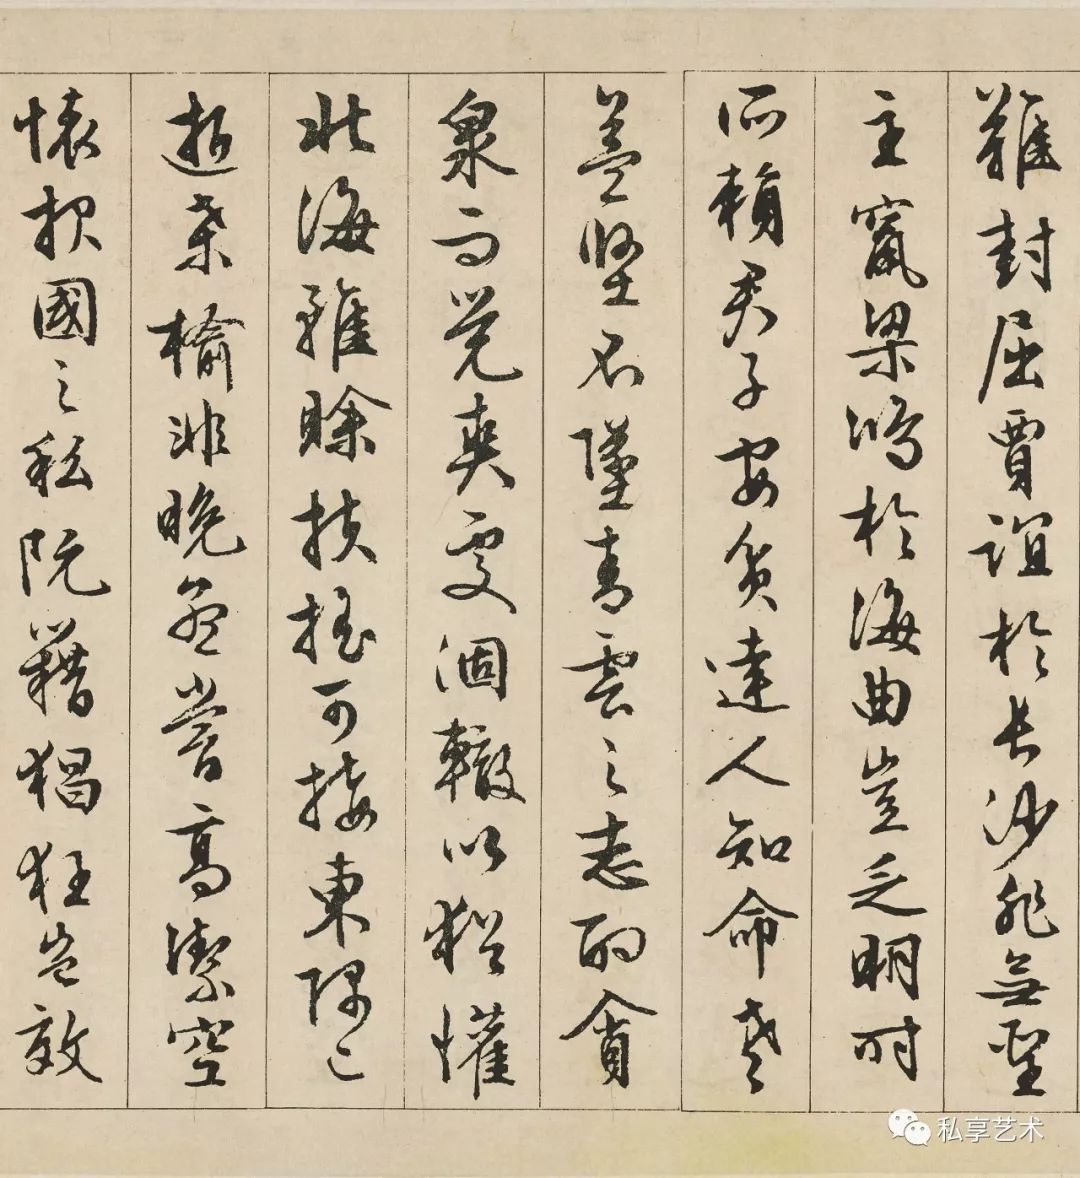 難封屈賈誼於長沙非無聖
主竄梁鴻於海曲豈乏明時
所賴君子安貧達人知命老
益堅不墜青雲之志酌貪
泉而覺爽處涸轍以猶懽
北海雖賒扶搖可接東隅已
逝桑榆非晚孟嘗高潔空
懷報國之私阮籍猖狂豈效
私享艺术